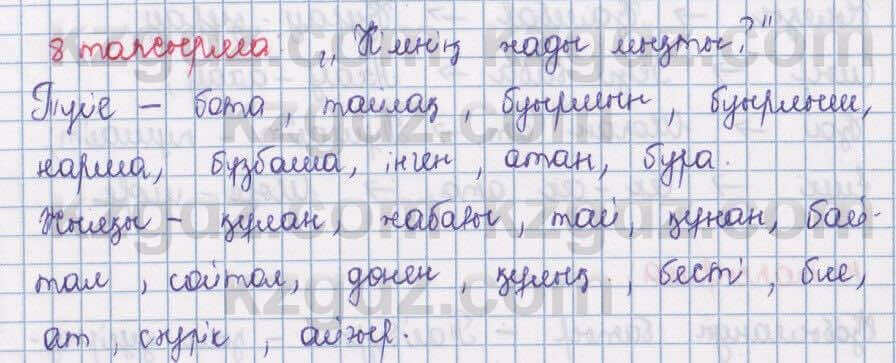 8 тапсырма „Кімнің жады мықты?"
Түйе – бота, тайлақ, буыршын, буыршын,
нарша, бузбаша, інген, атан, бура.
Жылқы – құлан, жабағы, тай, құнан, бай-
тал, сәйтал, дөнен, құлың, бесті, бие,
ат, сәурік, айғыр.